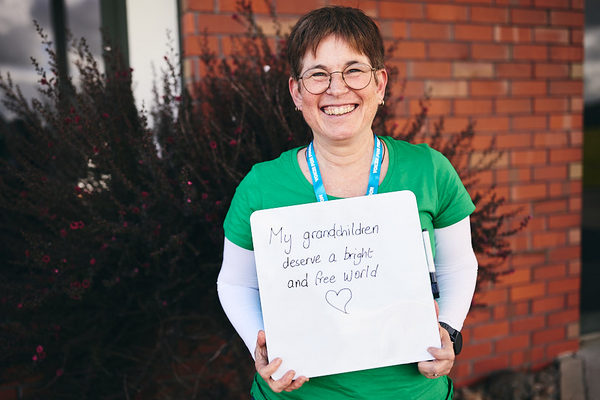 My grandchildren
deserve a bright
and free world